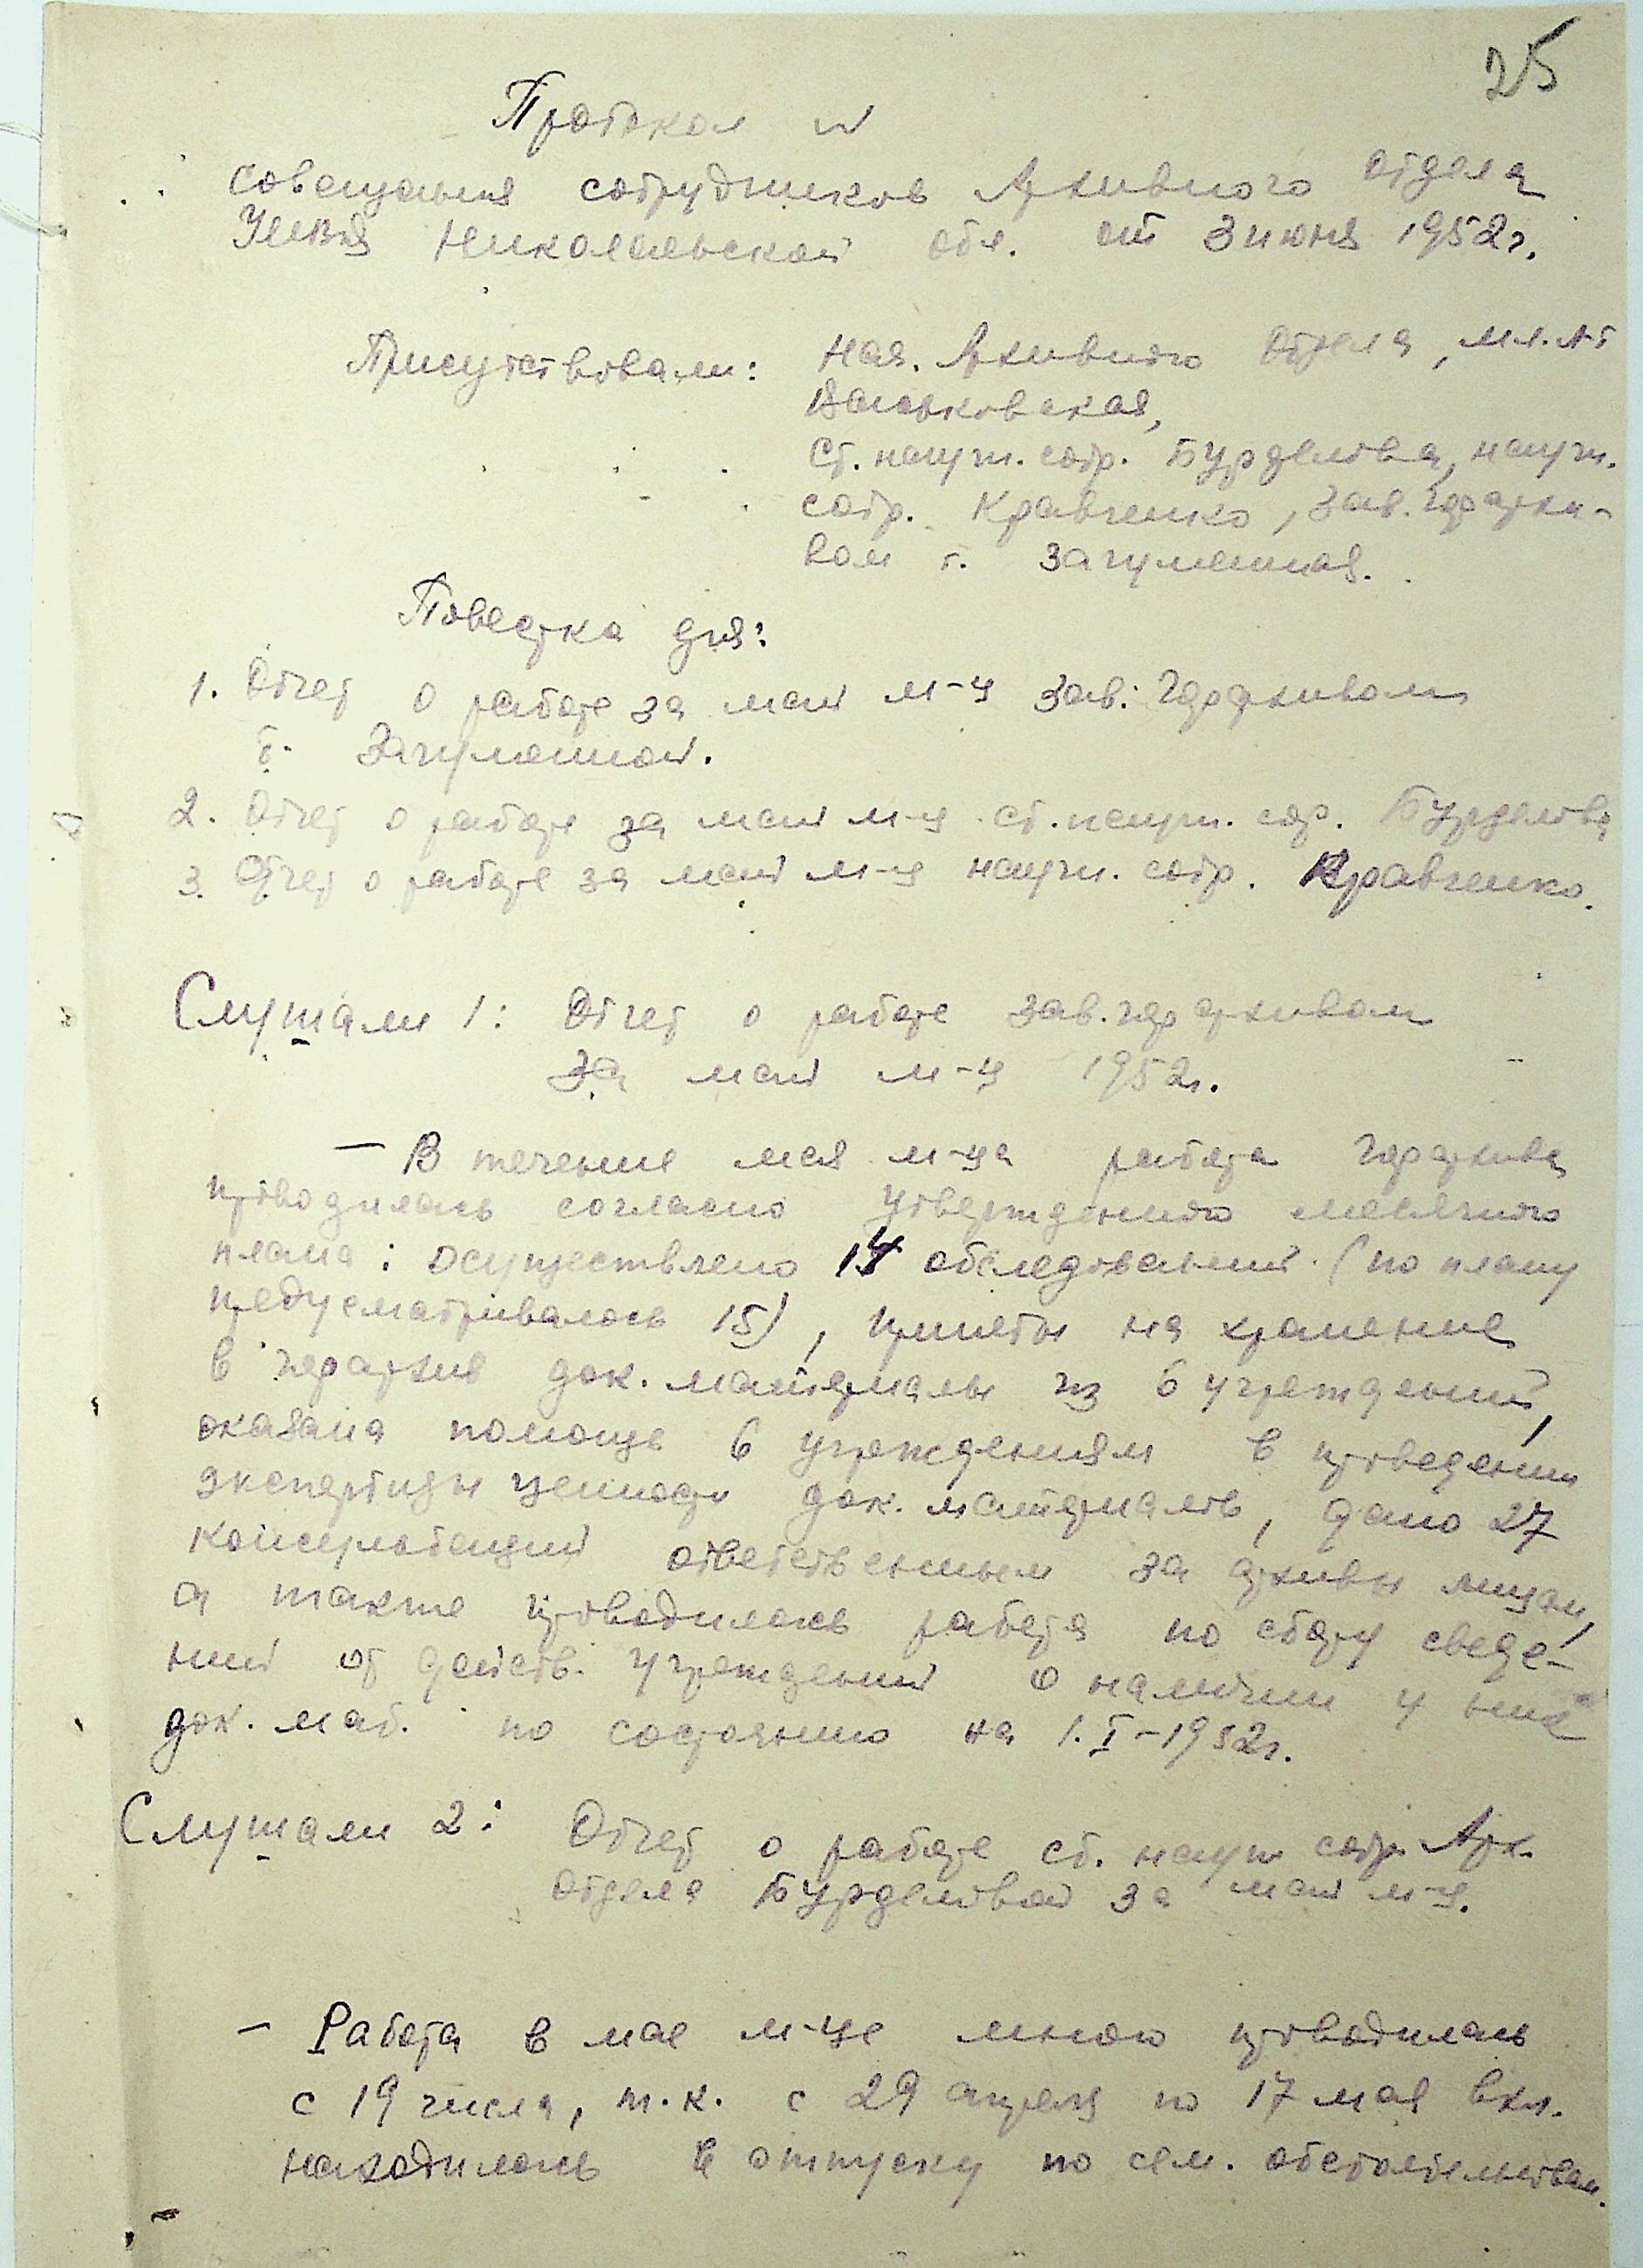 25
Протокол №
совещания сотрудников Архивного отдела
УМВД Николаевской обл. от 3 июня 1952 г.
Присутствовали: Нач. Архивного отдела, мл. л-т
Васьковская,
Ст. научн. сотр. Бурделова, научн.
сотр. Кравченко, Зав. горархи-
вом т. Загуменная.
Повестка дня:
1. Отчет о работе за май м-ц Зав. Горархивом
т. Загуменной.
2. Отчет о работе за май м-ц ст. научн. сотр. Бурделова
3. Отчет о работе за май м-ц научн. сотр. Кравченко.
Слушали 1: Отчет о работе зав. горархивом
за май м-ц 1952 г.
— В течение мая м-ца работа горархива
проводилась согласно утвержденного месячного
плана: осуществлено обследований (по плану
предусматривалось 15), приняты на хранение
в горархив док. материалы из 6 учреждений,
оказана помощь 6 учреждениям в проведении
экспертизы ценности док. материалов, дано 27
консультаций ответственным за архивы лицам,
а также проводилась работа по сбору сведе-
ний от действ. учреждений о наличии у них
док. мат. по состоянию на 1.I-1952 г.
Слушали 2: Отчет о работе ст. научн сотр. Арх.
отдела Бурделовой за май м-ц.
— Работа в мае м-це мною проводилась
с 19 числа, т.к. с 29 апреля по 17 мая вкл.
находилась в отпуску по сем. обстоятельствам.